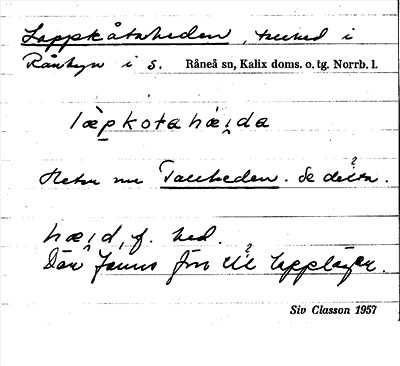 Lappkåtaheden, tallhed i
Rånbyn i s. Råneå sn, Kalix doms. o. tg. Norrb. l.
læpkåtahæi̯da
Heter nu Tallheden. Se detta.
hæi̯d, f. hed.
Där fanns förr ett lappläger.
Siv Classon 1957